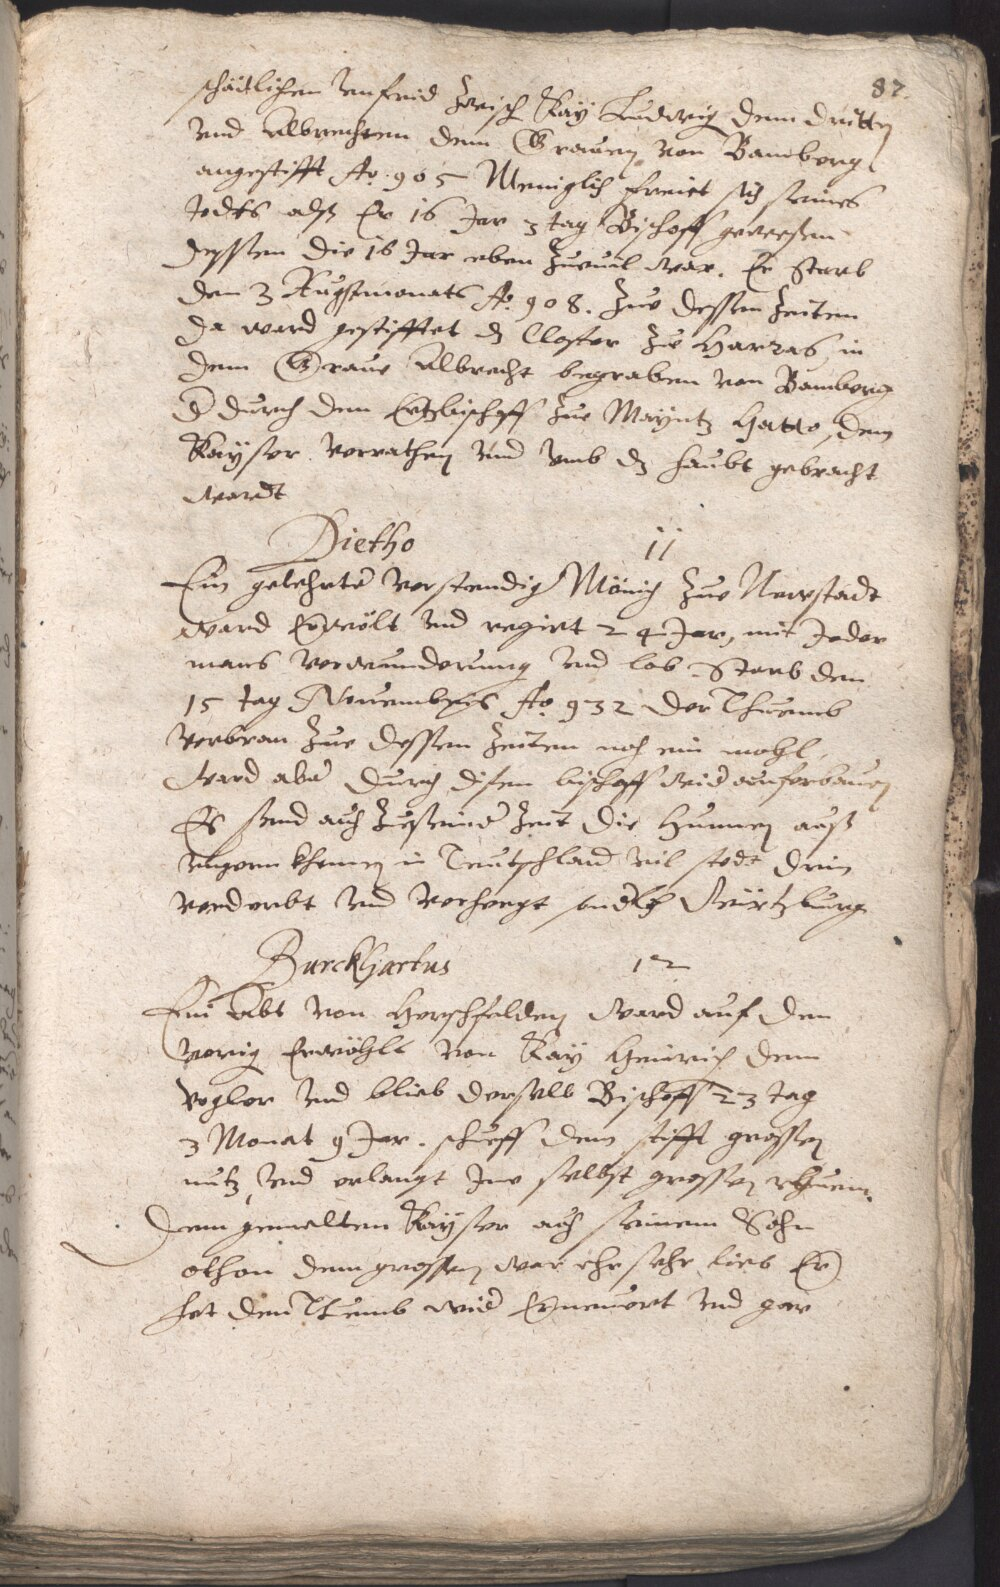 87.
schädlichen vnfrid zwisch Kay Ludwig dem dritten
vnd Albrechten dem Grauen von Bamberg
angestifft Ao. 905 Meniglich freiet sich seines
todts alß Er 16 Jar 3 tag Bischoff gewesen
dessen die 16 Jar eben zuuil war. Er starb
den 3 Augstmonats Ao. 908. Zue dessen Zeiten
da ward gestifftet dz Closter zu in
dem Graue Albrecht begraben von Bamberg
d durch den Ertzbischoff zue Mayntz Hatto, dem
Kayser verrathen vnd vmb dz haubt gebracht
wardt
Dietho 11
Ein gelehrter verstendig Mönich zue Newstadt
ward Erwölt vnd regirt 24 Jar, mit Jeder
mans verwunderung vnd lob starb den
15 tag Nouembris Ao 932 der Thuemb
verbran zue dessen Zeiten noch ein mahl,
ward aber durch disen bischoff wider auferbauen
Es send auch zu seiner Zeit die Hunnen auß
vngern khomen in Teutschland vil stedt drin
verderbt vnd verhergt sonderlich Würtzburg
Burckhartus 12
Ein Abt von Herschfelden ward auf den
vorig Erwöhlt von Kay Heinrich dem
vogler vnd blieb derselb Bischoff 23 tag
3 Monat 9 Jar. schueff dem stifft grossen
nutz, vnd erlangt Ime selbst grossen rhuem.
Dem gemelten Kayser auch seinem Sohn
othon dem grossen war ehr sehr lieb Er
het den Thuemb wider Erneuert vnd gar